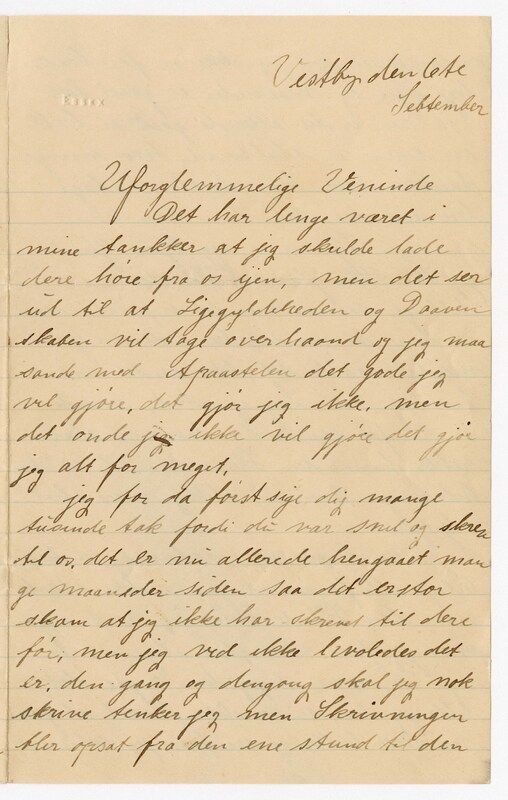 Vistby den 6te
Sebtember
Essex
Uforglemmelige Veninde
Det har lenge været i
mine tankker at jeg skulde lade
dere høre fra os ijen, men det ser
ud til at Ligegyldeheden og Daaven
skaben vil tage overhaand og jeg maa
sande med Apaastelen det gode jeg
vil gjöre, det gjör jeg ikke. men
det onde jeg ikke vil gjöre det gjör
jeg alt for meget,
jeg for da först sige dig mange
tusinde tak fordi du var snil og skrev
til os. det er nu allerede hengaaet man
ge maaneder siden saa det er stor
skam at jeg ikke har skrevet til dere
för, men jeg ved ikke hvoledes det
er, den gang og dengang skal jeg nok
skrive tenker jeg men Skrivningen
blir opsat fra den ene stund til den